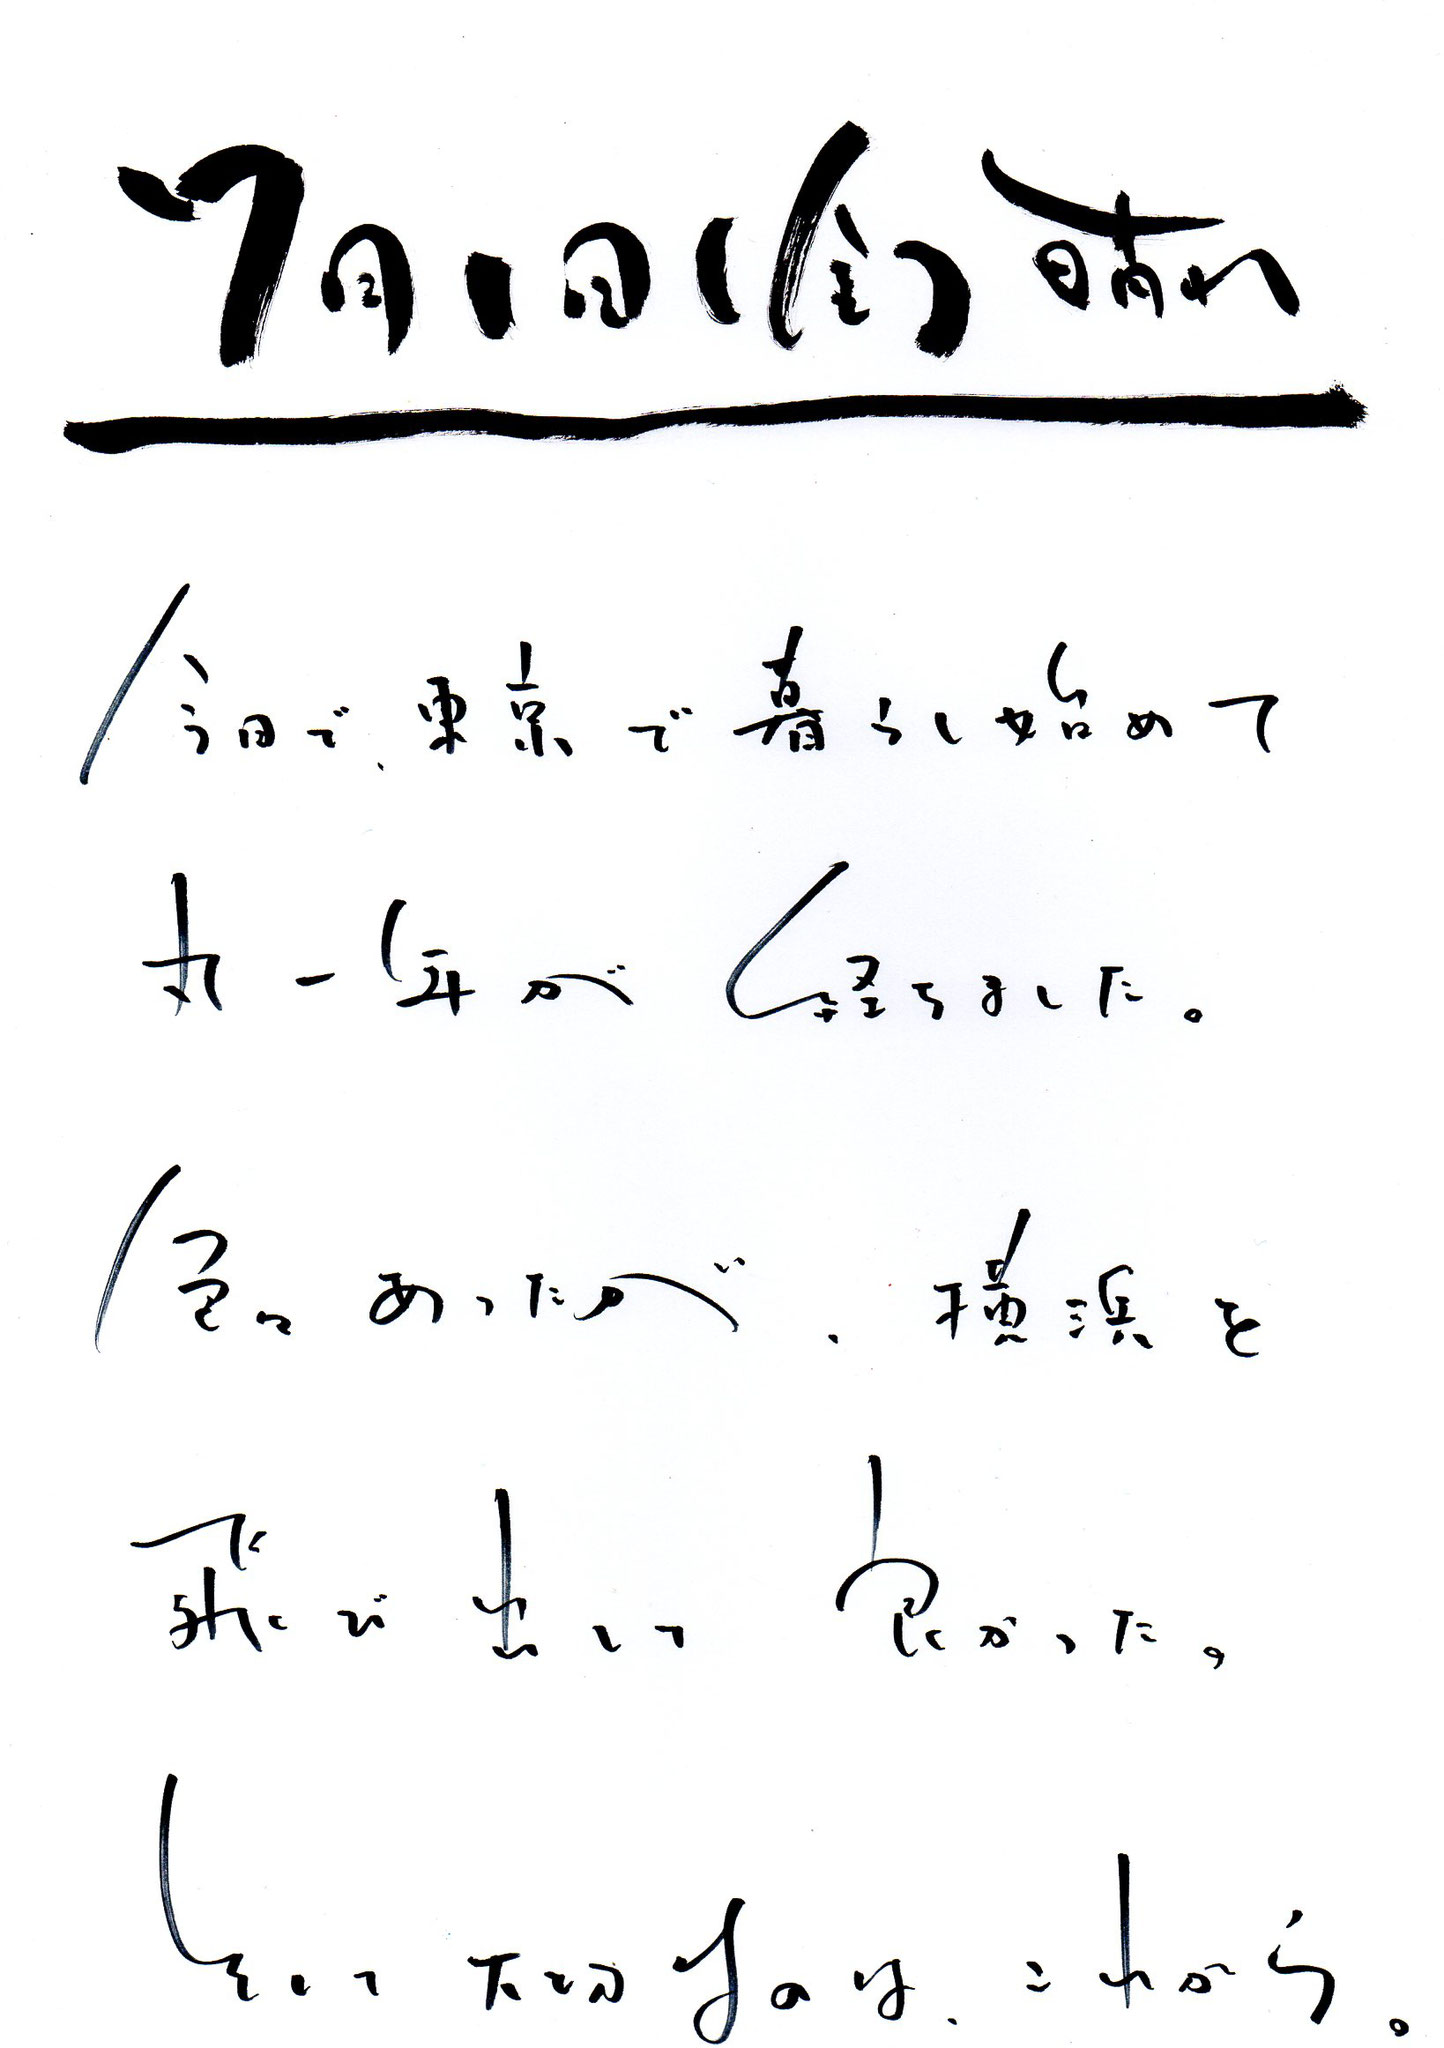 7月1日(金) 晴れ
今日で、東京で暮らし始めて
丸一年が経ちました。
色々あったが、横浜を
飛び出して良かった。
そして大切なのは、これから。